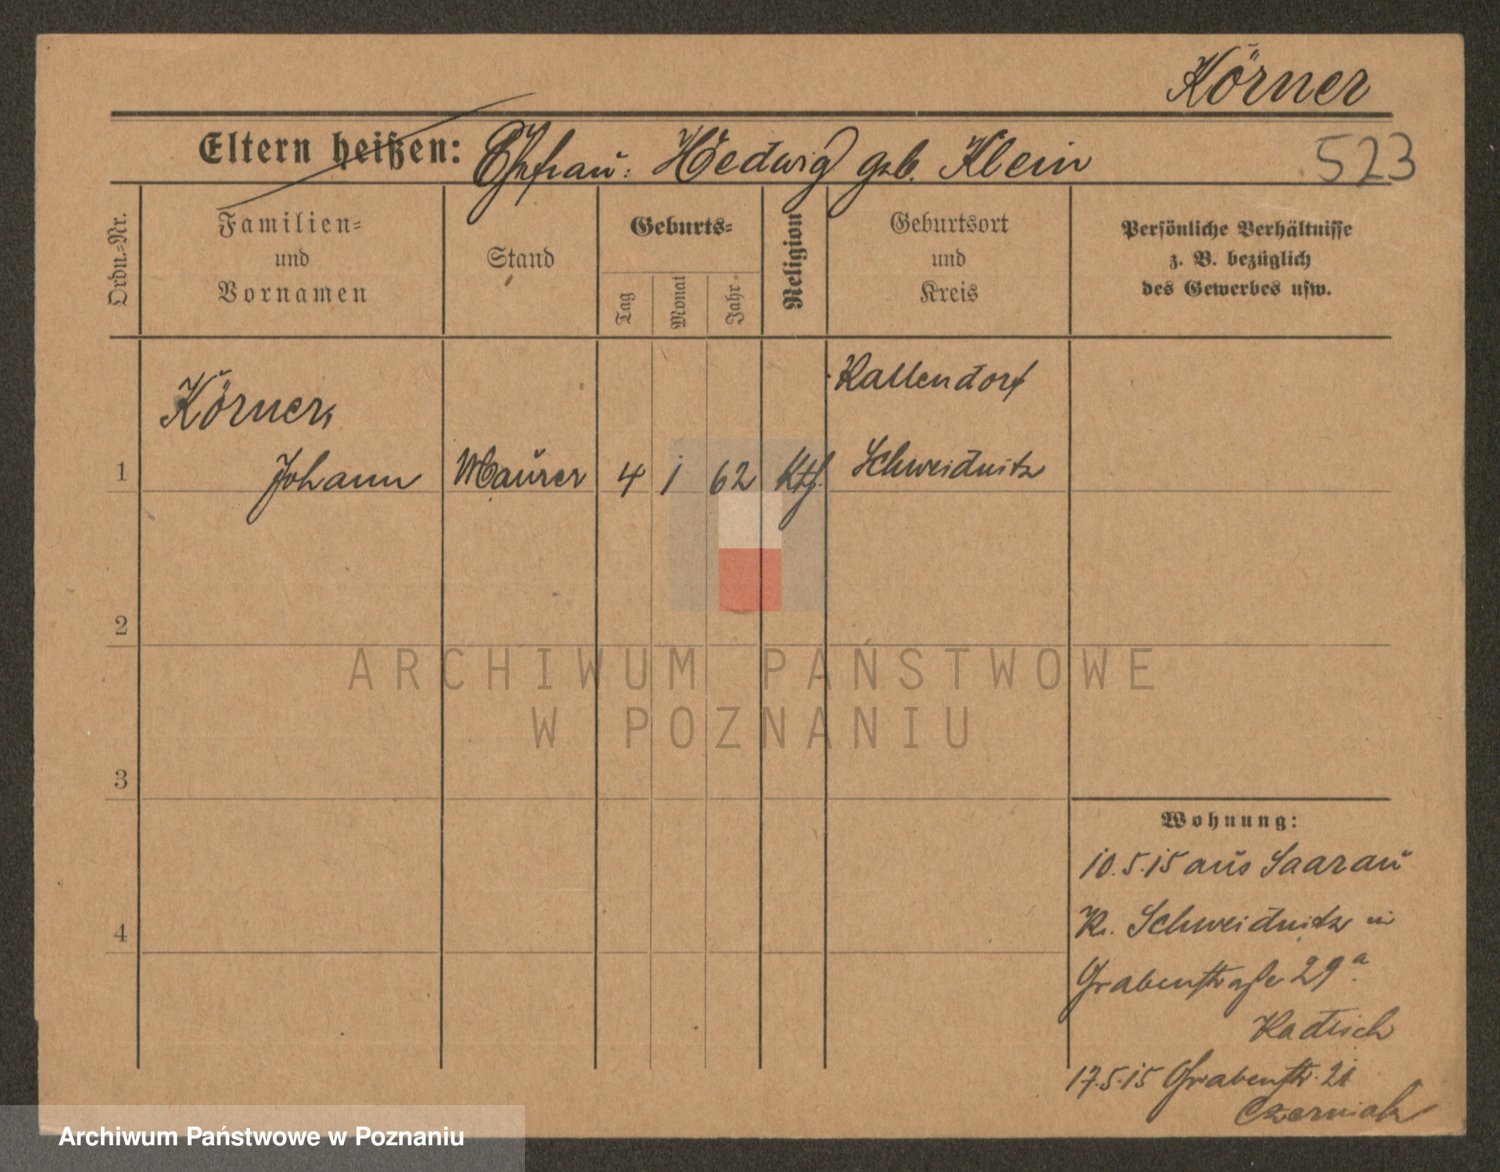 Körner
Eltern heißen: Ehefrau: Hedwig geb. Klein
523
Ordn.-Nr.
Familien-
und
Vornamen
Stand
Geburts-
Tag
Monat
Jahr
Religion
Geburtsort
und
Kreis
Persönliche Verhältnisse
z. B. bezüglich
des Gewerbes usw.
Körner,
Kallendorf
1 Johann Maurer 4 1 62 Kth. Schweidnitz
2
ARCHIWUM PAŃSTWOWE
W POZNANIU
3
4
Wohnung:
10.5.15 aus Saarau
Kr. Schweidnitz in
Grabenstraße 29a.
Kadisch
17.5.15 Grabenstr. 21
Czerniak
Archiwum Państwowe w Poznaniu